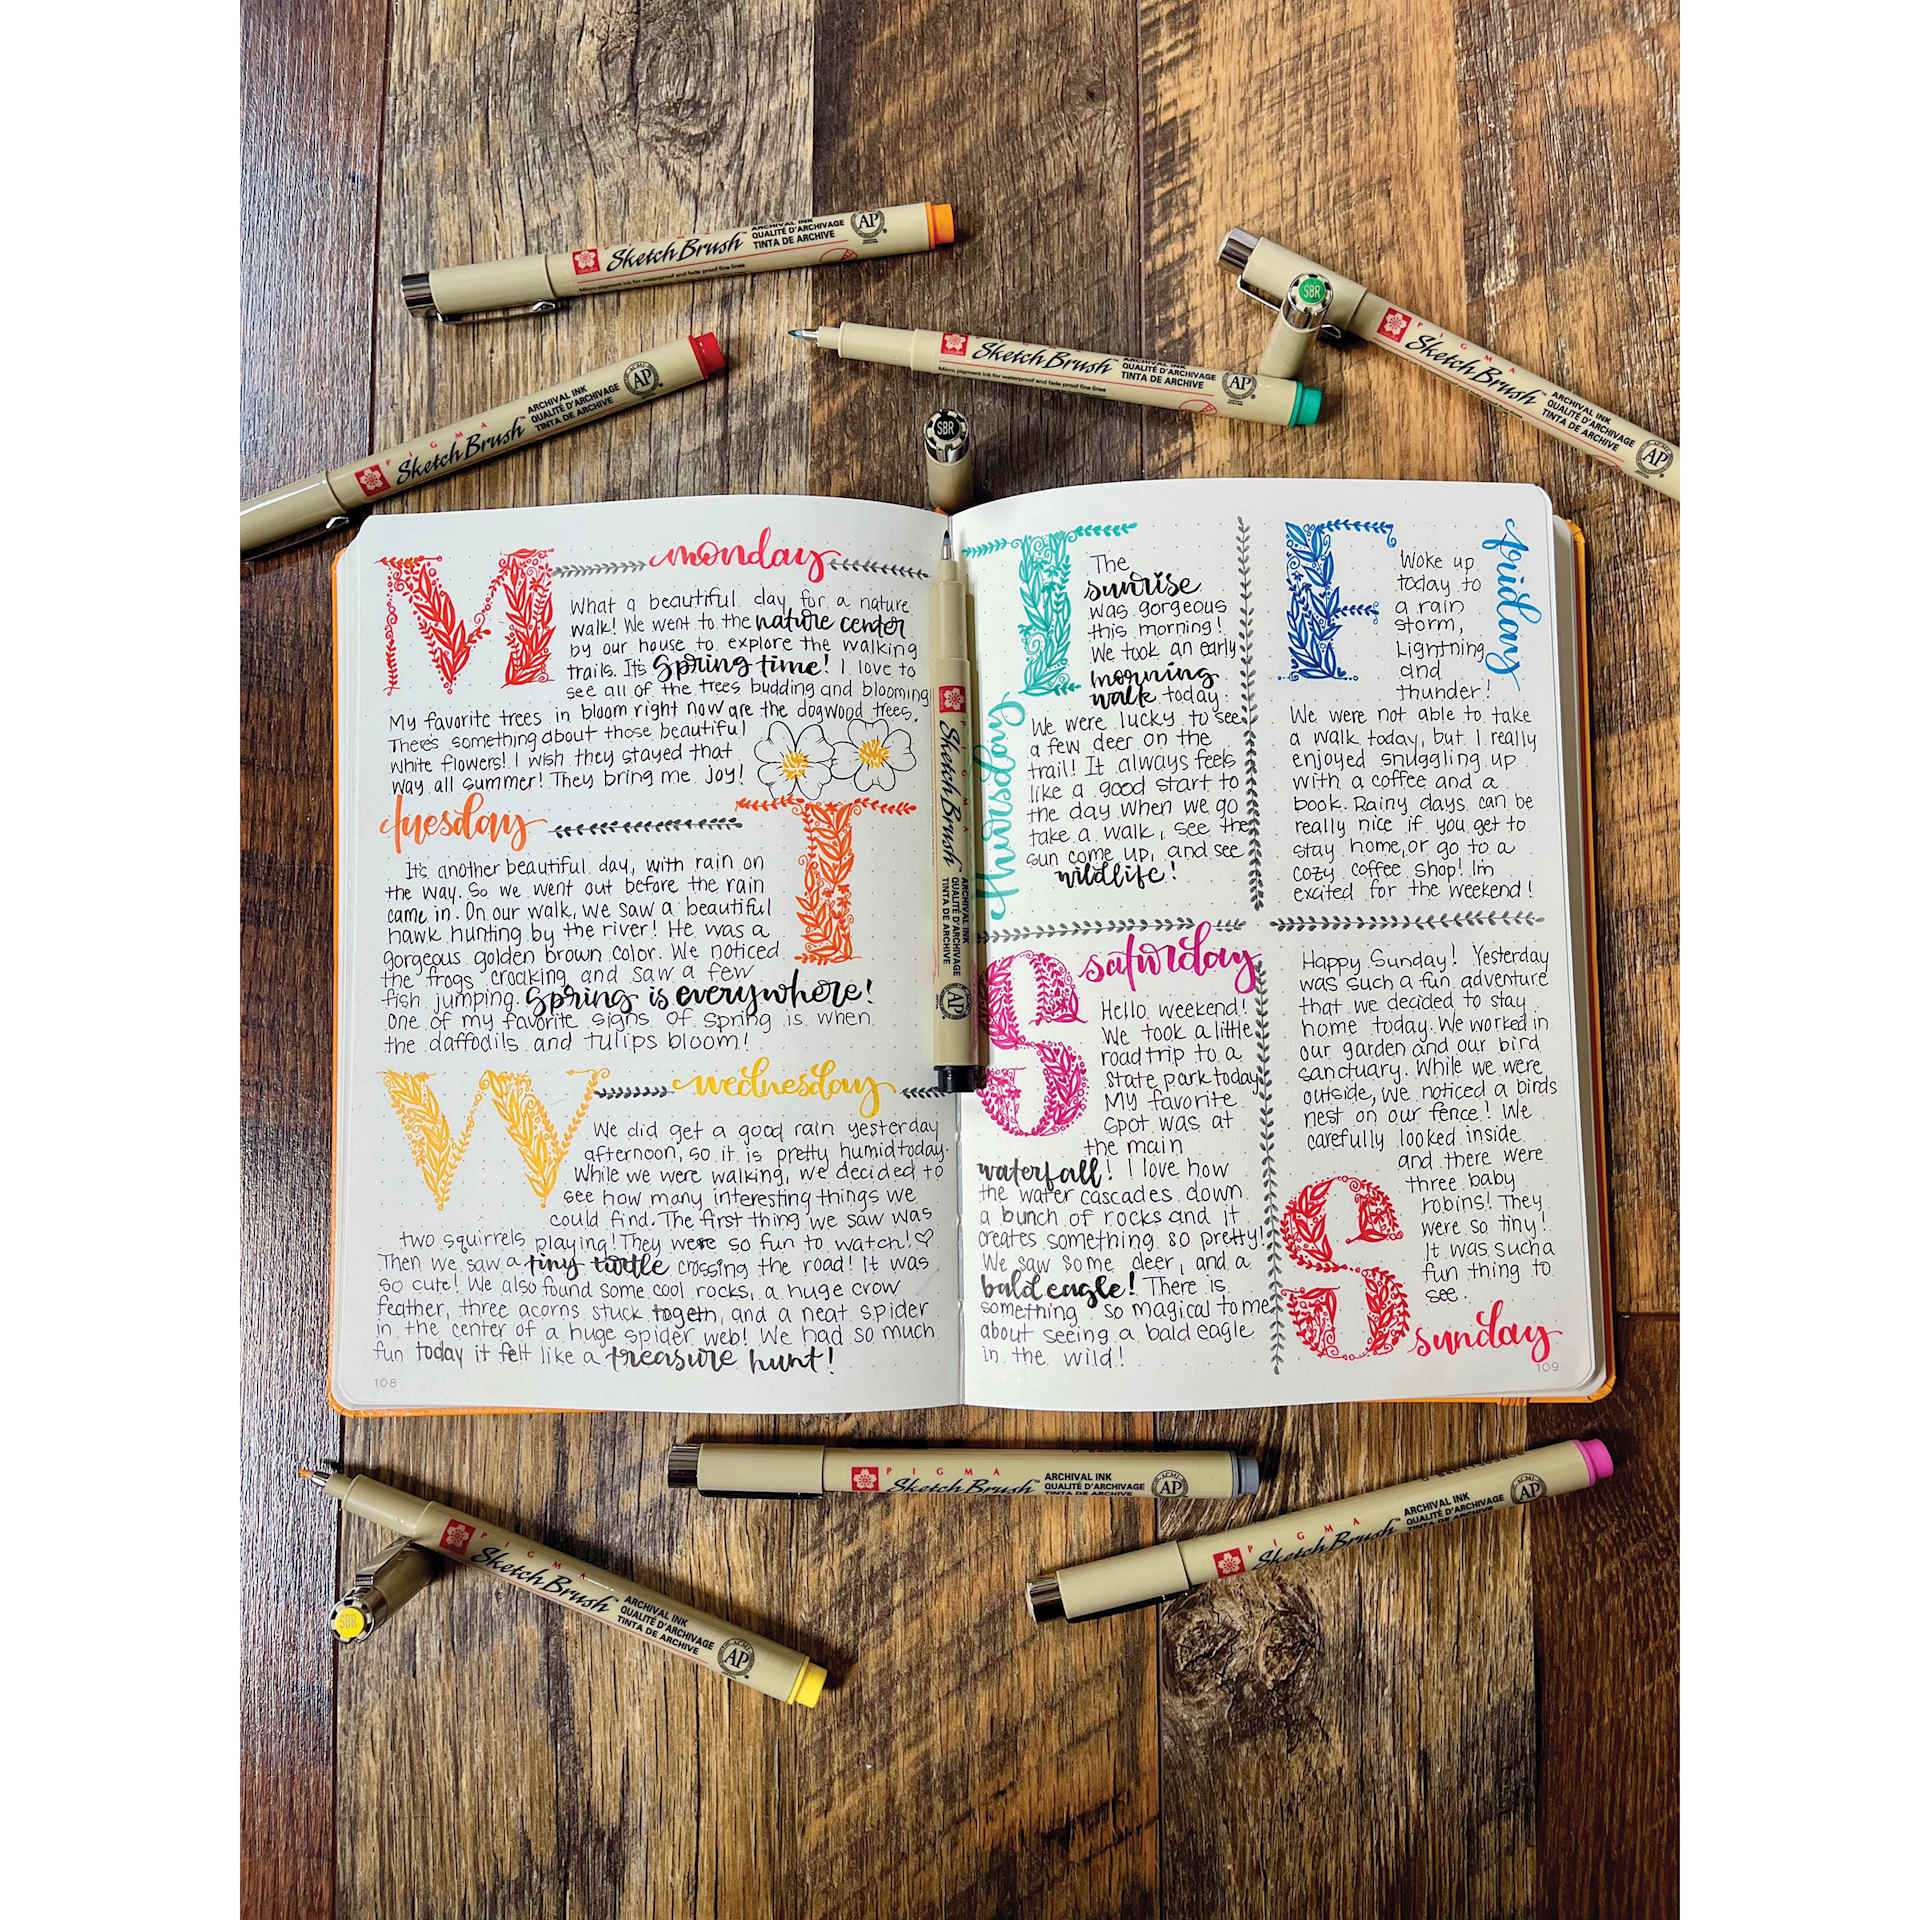 ARCHIVAL INK
QUALITÉ D'ARCHIVAGE
TINTA DE ARCHIVE
AP
Sketch Brush™
Micro pigment ink for waterproof and fade proof fine lines
PIGMA
Sketch Brush™
ARCHIVAL INK
QUALITÉ D'ARCHIVAGE
TINTA DE ARCHIVE
AP
Sketch Brush™
Micro pigment ink for waterproof and fade proof fine lines
ARCHIVAL INK
QUALITÉ D'ARCHIVAGE
TINTA DE ARCHIVE
AP
SBR
PIGMA
Sketch Brush™
ARCHIVAL INK
QUALITÉ D'ARCHIVAGE
TINTA DE ARCHIVE
AP
SBR
M
monday
What a beautiful day for a nature
walk! We went to the nature center
by our house to explore the walking
trails. It's Spring time! I love to
see all of the trees budding and blooming
My favorite trees in bloom right now are the dogwood trees.
There's something about those beautiful
white flowers! I wish they stayed that
way all summer! They bring me joy!
tuesday
T
It's another beautiful day, with rain on
the way. So we went out before the rain
came in. On our walk, we saw a beautiful
hawk hunting by the river! He was a
gorgeous golden brown color. We noticed
the frogs croaking and saw a few
fish jumping. Spring is everywhere!
One of my favorite signs of spring is when
the daffodils and tulips bloom!
W
wednesday
We did get a good rain yesterday
afternoon, so it is pretty humid today.
While we were walking, we decided to
see how many interesting things we
could find. The first thing we saw was
two squirrels playing! They were so fun to watch!♡
Then we saw a tiny turtle crossing the road! It was
so cute! We also found some cool rocks, a huge crow
feather, three acorns stuck togeth, and a neat spider
in the center of a huge spider web! We had so much
fun today it felt like a treasure hunt!
108
PIGMA
Sketch Brush™
ARCHIVAL INK
QUALITÉ D'ARCHIVAGE
TINTA DE ARCHIVE
AP
T
thursday
The
sunrise
was gorgeous
this morning!
We took an early
morning
walk today.
We were lucky to see
a few deer on the
trail! It always feels
like a good start to
the day when we go
take a walk, see the
sun come up, and see
wildlife!
F
friday
Woke up
today to
a rain
storm,
Lightning
and
thunder!
We were not able to take
a walk today, but I really
enjoyed snuggling up
with a coffee and a
book. Rainy days can be
really nice if you get to
stay home, or go to a
cozy coffee shop! I'm
excited for the weekend!
S
saturday
Hello weekend!
We took a little
road trip to a
state park today
My favorite
spot was at
the main
waterfall! I love how
the water cascades down
a bunch of rocks and it
creates something so pretty!
We saw some deer, and a
bald eagle! There is
something so magical to me
about seeing a bald eagle
in the wild!
Happy Sunday! Yesterday
was such a fun adventure
that we decided to stay
home today. We worked in
our garden and our bird
sanctuary. While we were
outside, we noticed a birds
nest on our fence! We
carefully looked inside
and there were
three baby
robins! They
were so tiny!
It was such a
fun thing to
see.
S
sunday
109
PIGMA
Sketch Brush™
ARCHIVAL INK
QUALITÉ D'ARCHIVAGE
TINTA DE ARCHIVE
AP
PIGMA
Sketch Brush™
ARCHIVAL INK
QUALITÉ D'ARCHIVAGE
TINTA DE ARCHIVE
AP
PIGMA
Sketch Brush™
ARCHIVAL INK
QUALITÉ D'ARCHIVAGE
TINTA DE ARCHIVE
ACMI
AP
SBR